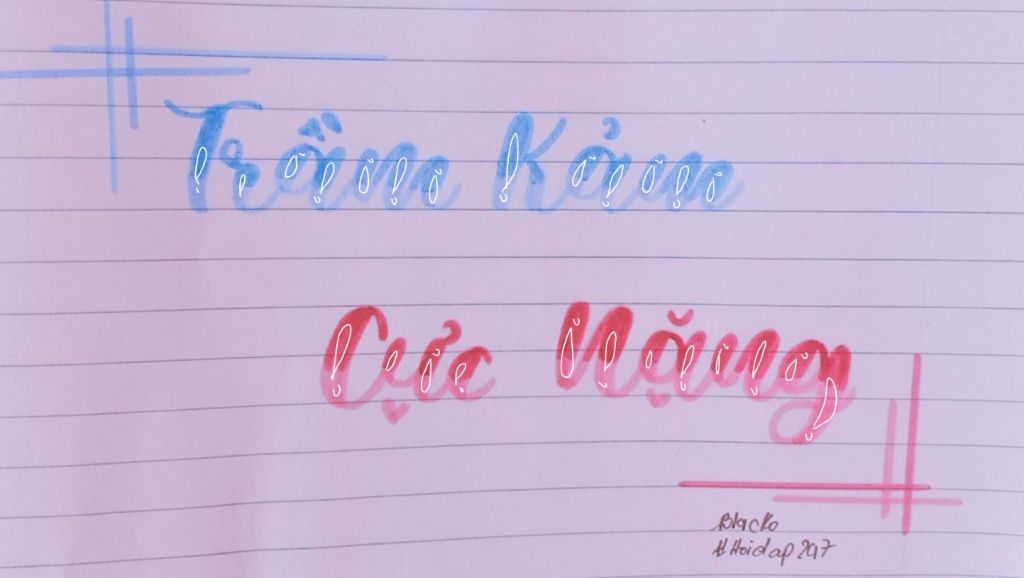 Trầm Kảm
Cực Nặng
Blacko
#Hoidap247